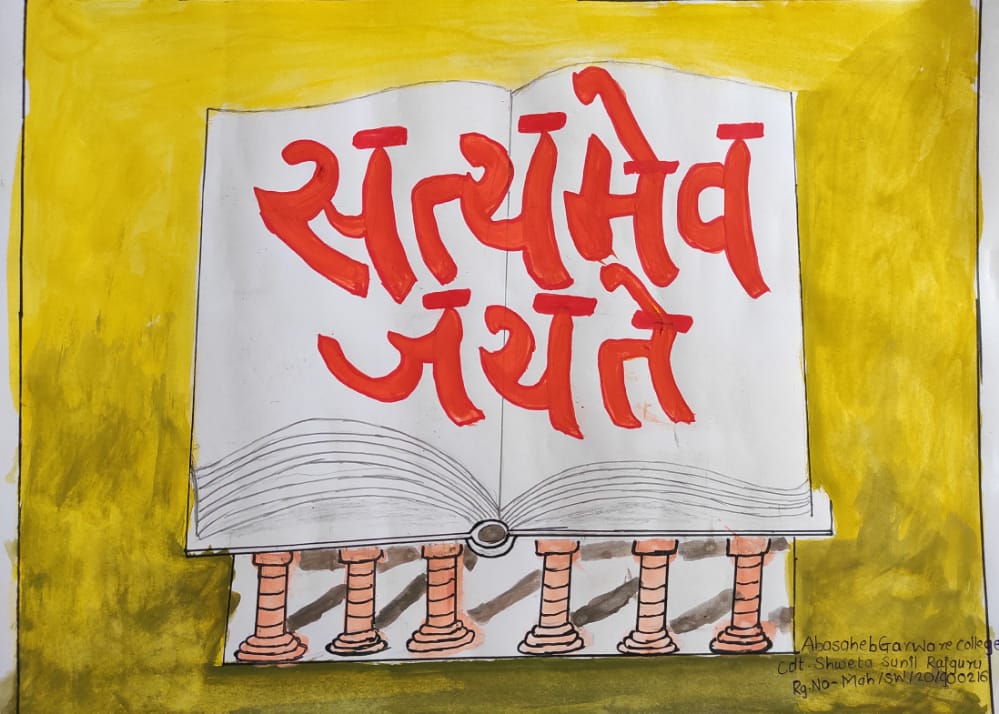 सत्यमेव
जयते
Abasaheb Garware college
Cdt. Shweta Sunil Rajguru
Rg.No- Mah/SW/20/900216